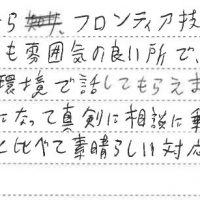 ら フロンティア技
も雰囲気の良い所で、
環境で話してもらえま
になって真剣に相談に乗
と比べて素晴らしい対応